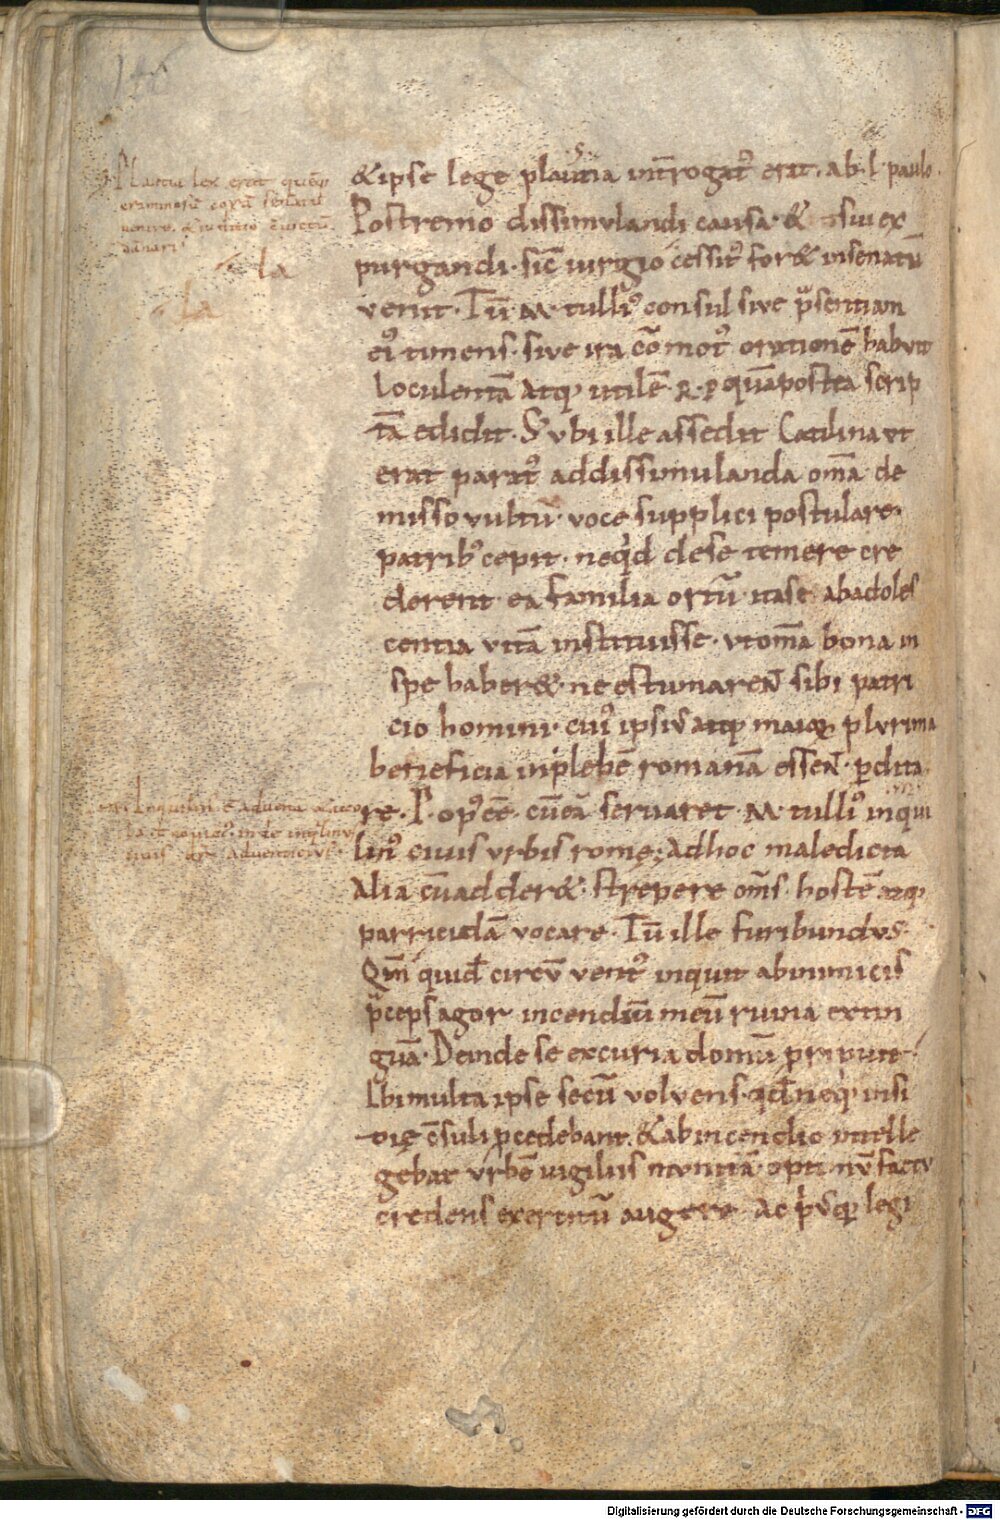 &ipse lege plautia int̄rogat᷒ erat. ab. l. paulo.
Postremo dissimulandi causa. & sui ex
purgandi. sic̄ iurgio cessit᷒ for& insenatū
venit. Tū M tulli᷒ consul sive p̄sentiam
ei᷒ timens. sive ira cōmot᷒ orationē habuit
loculentā atq; utilē R. P quā postea scrip
tā edidit. S; ubi ille assedit Catilina ut
erat parat᷒ addissimulanda om̄a de
misso vultu. voce supplici postulare.
patrib᷒ cepit. neq̇d dese temere cre
derent ea familia ortū. itase abadoles
centia vitā instituisse. utom̄a bona in
spe haber&. ne estimaren̄ sibi patri
cio homini. cui᷒ ipsi᷒ atq; maioꝝ plurima
beneficia inplebē romanā essen̄. ꝑdita
re. P. op᷒ eē. cū eā servaret M tulli᷒ inqui
lin᷒ civis urbis rome; Adhoc maledicta
Alia cū adder&. strepere om̄s. hostē atq;
parricidā vocare. Tū ille furibundus.
Qm̄ quid̄ circū vent᷒ inquit abinimicis
p̄ceps agor incendiū meū ruina extin
guā. Deinde se excuria domū pripuit.
Ibimulta ipse secū volvens. qd̄ neq; insi
dię c̄suli ꝓcedebant. & ab incendio intelle
gebat urbē vigiliis munitā. optimū factū
credens exercitū augere. Ac p̓usq̄ legi
Plautia lex erat
la
la
Digitalisierung gefördert durch die Deutsche Forschungsgemeinschaft - DFG